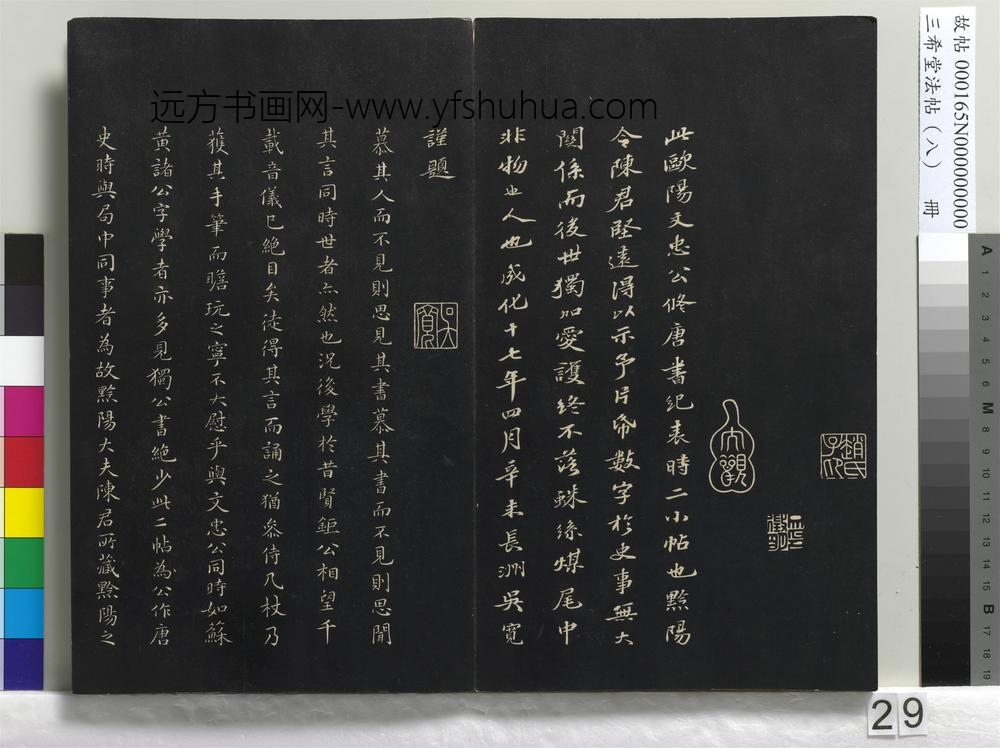 故帖 000165N000000000
三希堂法帖（八） 冊
远方书画网-www.yfshuhua.com
趙氏子昂
大觀
此歐陽文忠公修唐書紀表時二小帖也黟陽
令陳君堅遠得以示予片紙數字於史事無大
關係而後世獨加愛護終不落蛛絲煤尾中
非物也人也成化十七年四月辛未長洲吳寬
謹題
吳寬
慕其人而不見則思見其書慕其書而不見則思聞
其言同時世者亦然也況後學於昔賢鉅公相望千
載音儀已絕目矣徒得其言而誦之猶參侍几杖乃
獲其手筆而瞻玩之寧不大慰乎與文忠公同時如蘇
黃諸公字學者亦多見獨公書絕少此二帖為公作唐
史時與局中同事者為故黟陽大夫陳君所藏黟陽之
A 1 2 3 4 5 6 M 8 9 10 11 12 13 14 15 B 17 18 19
29